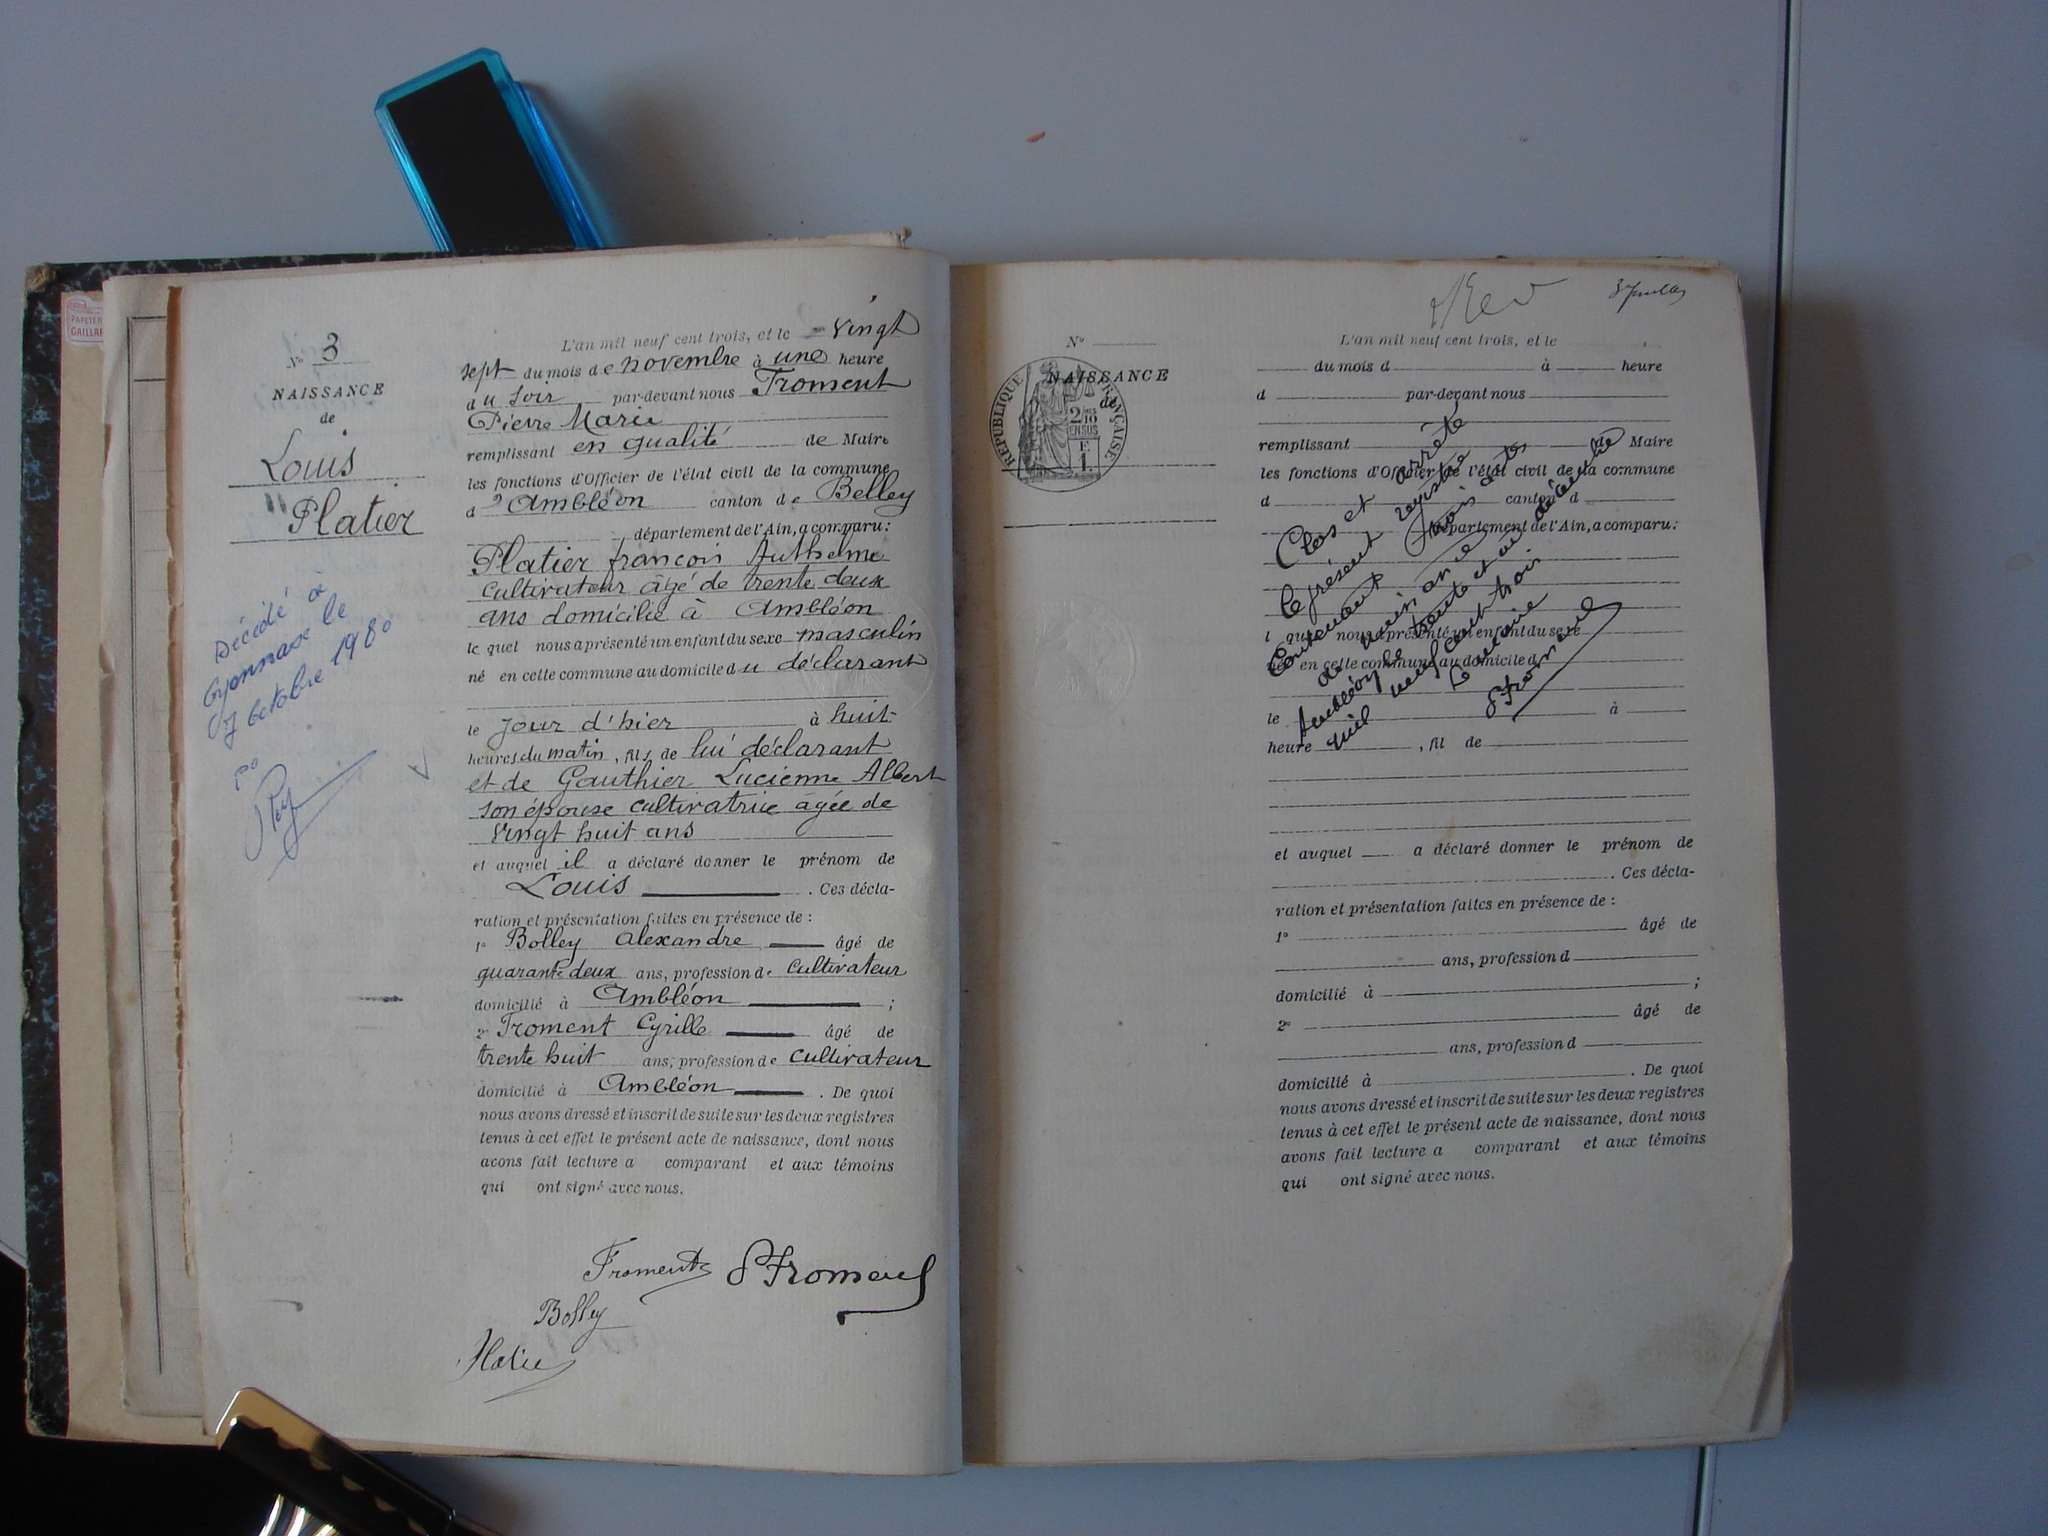 PAPETER
GAILLAR
N° 3
NAISSANCE
de
Louis
Platier
Décédé à
Oyonnax le
octobre 1980
L'an mil neuf cent trois, et le vingt
sept du mois de novembre à une heure
du soir par-devant nous Froment
Pierre Marie
remplissant en qualité de Maire
les fonctions d'Officier de l'état civil de la commune
d'Ambléon canton de Belley
département de l'Ain, a comparu:
Platier françois Anthelme
cultivateur âgé de trente deux
ans domicilié à Ambléon
lequel nous a présenté un enfant du sexe masculin
né en cette commune au domicile du déclarant
le jour d'hier à huit
heures du matin, fils de lui déclarant
et de Gauthier Lucienne Albert
son épouse cultivatrice agée de
vingt huit ans
et auquel il a déclaré donner le prénom de
Louis . Ces décla-
ration et présentation faites en présence de :
1° Bolley Alexandre âgé de
quarante deux ans, profession de cultivateur
domicilié à Ambléon ;
2° Froment Cyrille âgé de
trente huit ans, profession de cultivateur
domicilié à Ambléon . De quoi
nous avons dressé et inscrit de suite sur les deux registres
tenus à cet effet le présent acte de naissance, dont nous
avons fait lecture a comparant et aux témoins
qui ont signé avec nous.
Froment P Froment
Bolley
Platier
N°
NAISSANCE
de
RÉPUBLIQUE FRANÇAISE
2/10
EN SUS
E
1
L'an mil neuf cent trois, et le
du mois d à heure
d par-devant nous
remplissant de Maire
les fonctions d'Officier de l'état civil de la commune
d canton d
département de l'Ain, a comparu:
l quel nous a présenté un enfant du sexe
né en cette commune au domicile d
le à
heure , fil de
et auquel a déclaré donner le prénom de
. Ces décla-
ration et présentation faites en présence de :
1° âgé de
ans, profession d
domicilié à ;
2° âgé de
ans, profession d
domicilié à . De quoi
nous avons dressé et inscrit de suite sur les deux registres
tenus à cet effet le présent acte de naissance, dont nous
avons fait lecture a comparant et aux témoins
qui ont signé avec nous.
Clos et arrêté
le présent registre
contenant trois actes
de naissance
Ambléon le trente et un décembre
mil neuf cent trois
Le Maire
P Froment